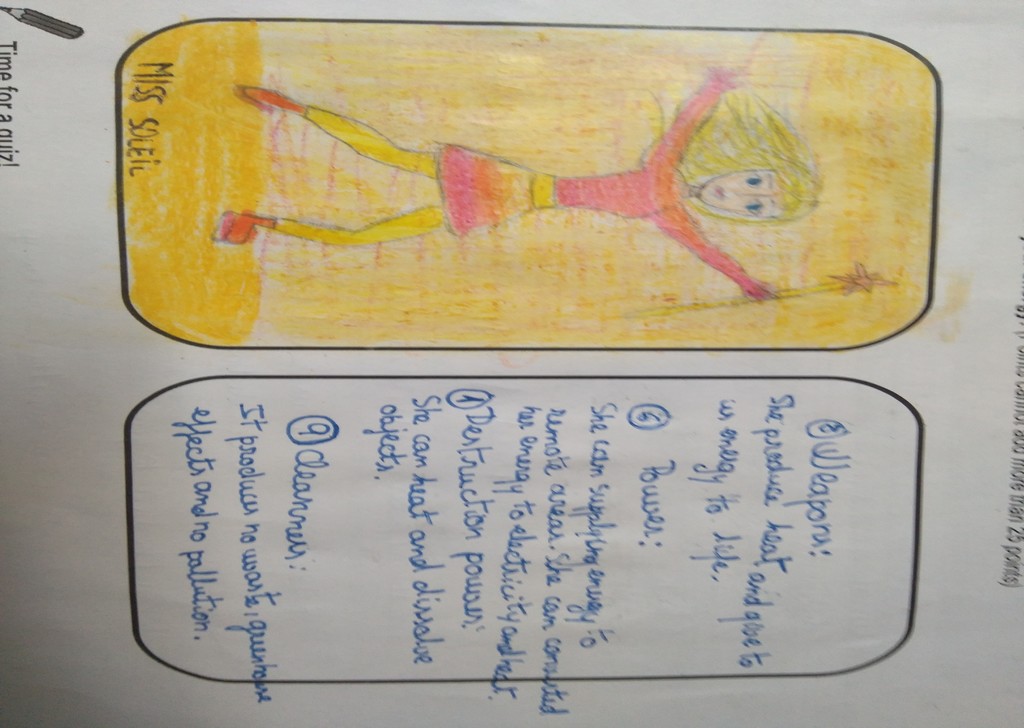 points cannot add more than 25 points)
MISS SOLEIL
⑧ Weapons:
She produce heat and give to
us energy to life.
⑥ Power:
She can supplying energy to
remote areas. She can converted
her energy to electricity and heat.
① Destruction power:
She can heat and dissolve
objects.
⑨ Cleanness:
It produces no waste, greenhouse
effects and no pollution.
Time for a quiz!